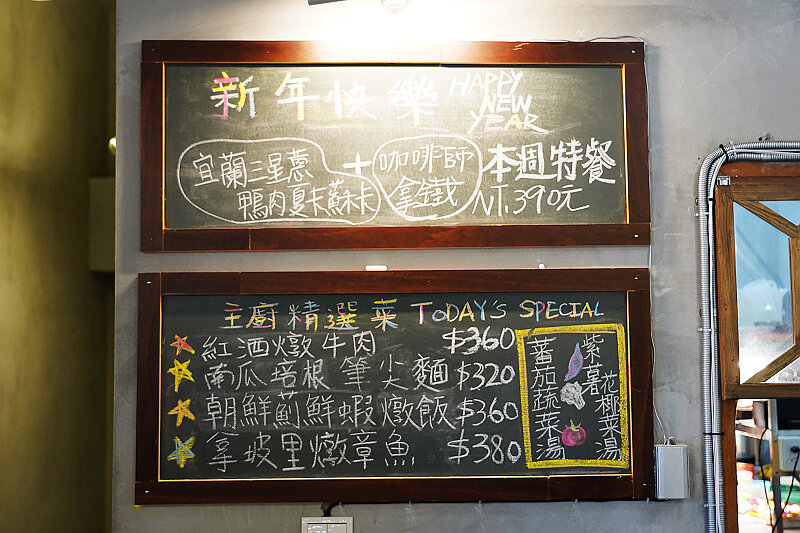 新年快樂 HAPPY
NEW
YEAR
宜蘭三星蔥
鴨肉夏卡蘇卡
+
咖啡師
拿鐵
本週特餐
NT.390元
主廚精選菜 TODAY'S SPECIAL
紅酒燉牛肉 $360
南瓜培根筆尖麵 $320
朝鮮薊鮮蝦燉飯 $360
拿坡里燉章魚 $380
紫薯花椰菜湯
蕃茄蔬菜湯